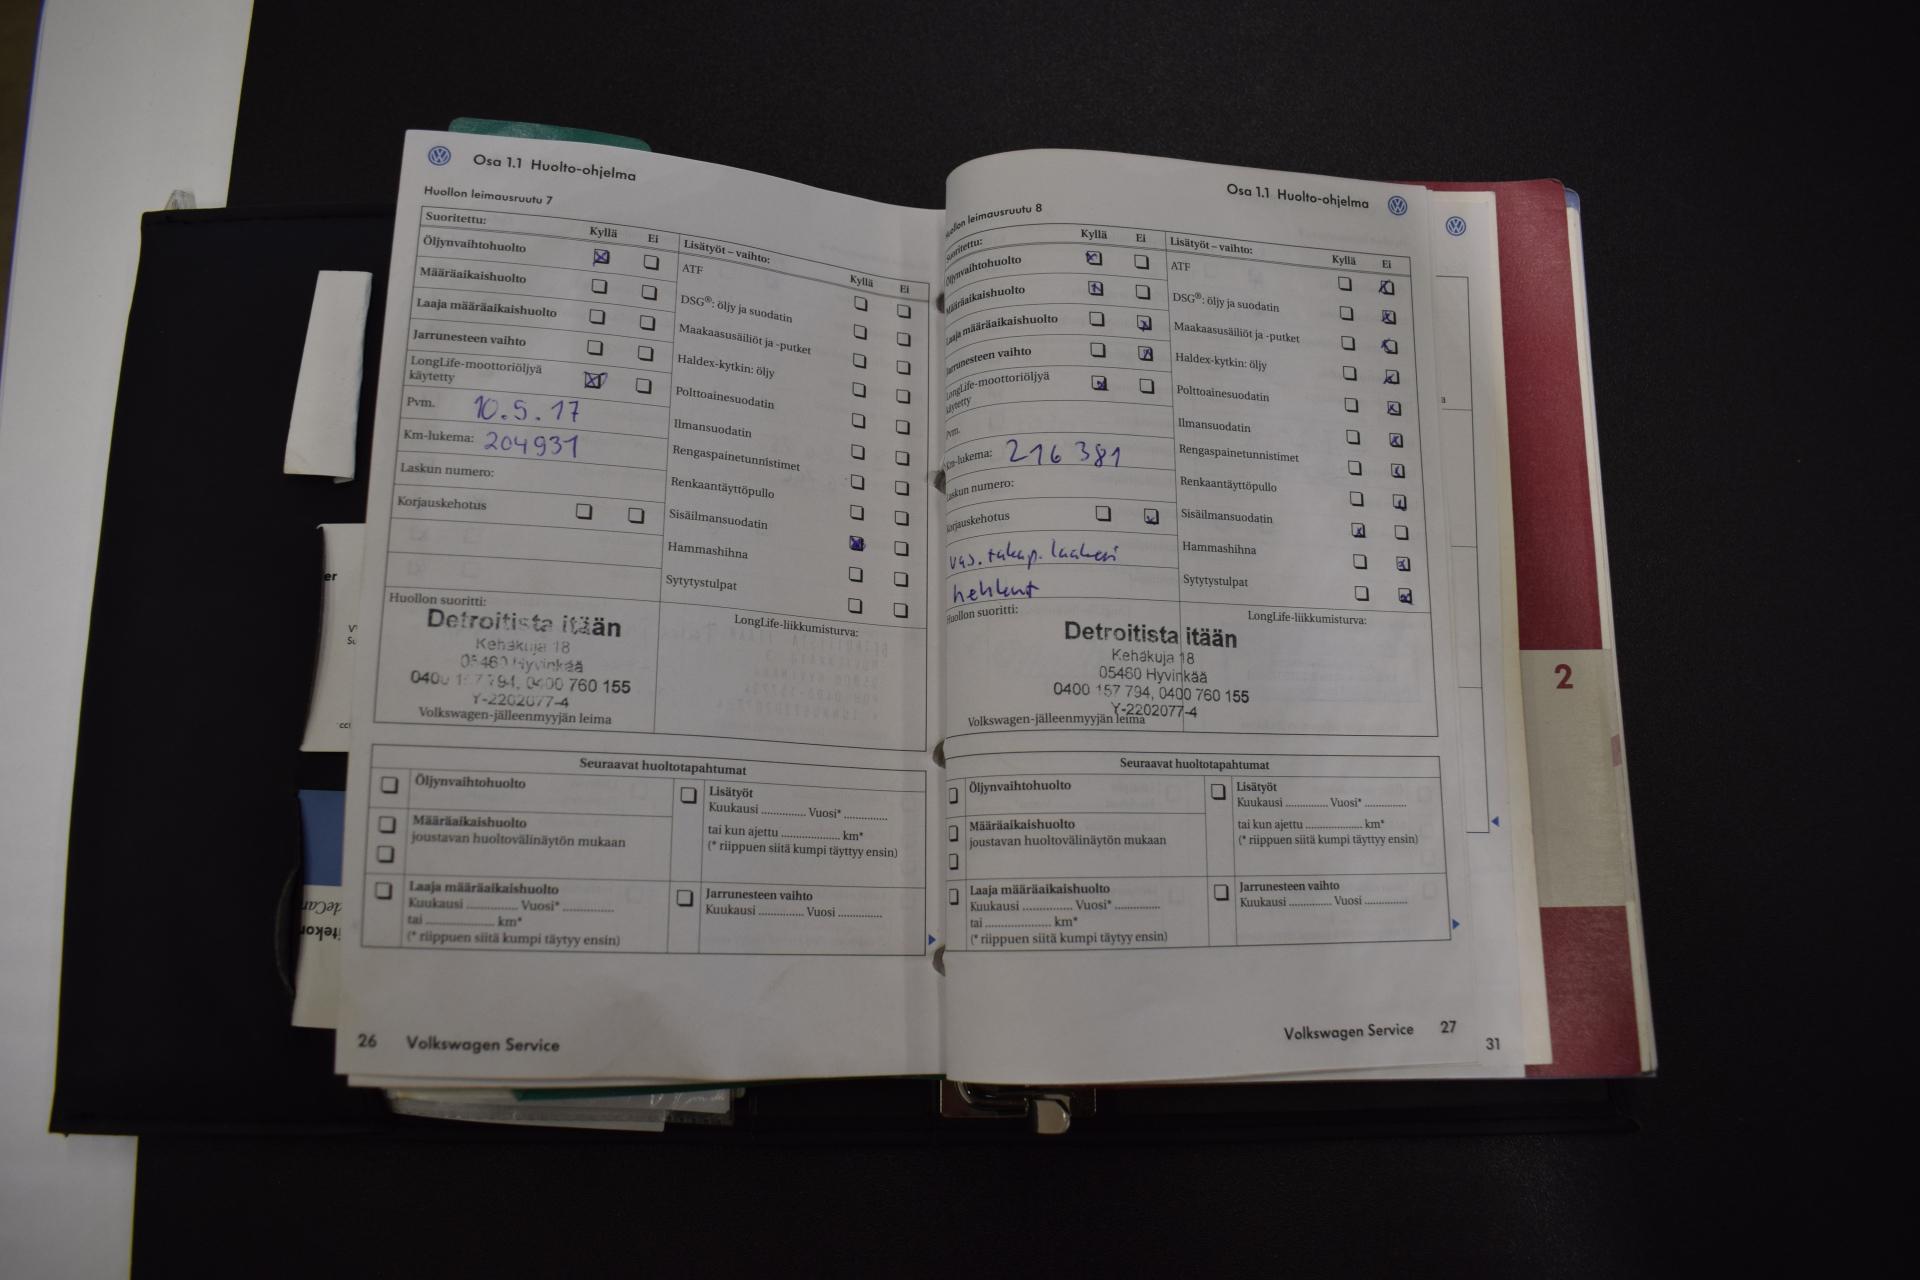 Osa 1.1 Huolto-ohjelma
Huollon leimausruutu 7
Suoritettu:
Kyllä Ei
Öljynvaihtohuolto
Määräaikaishuolto
Laaja määräaikaishuolto
Jarrunesteen vaihto
LongLife-moottoriöljyä
käytetty
Pvm. 10.5.17
Km-lukema: 204931
Laskun numero:
Korjauskehotus
Lisätyöt – vaihto:
Kyllä Ei
ATF
DSG®: öljy ja suodatin
Maakaasusäiliöt ja -putket
Haldex-kytkin: öljy
Polttoainesuodatin
Ilmansuodatin
Rengaspainetunnistimet
Renkaantäyttöpullo
Sisäilmansuodatin
Hammashihna
Sytytystulpat
Huollon suoritti:
Detroitista itään
Kehäkuja 18
05460 Hyvinkää
0400 157 794, 0400 760 155
Y-2202077-4
Volkswagen-jälleenmyyjän leima
LongLife-liikkumisturva:
Seuraavat huoltotapahtumat
Öljynvaihtohuolto
Määräaikaishuolto
joustavan huoltovälinäytön mukaan
Laaja määräaikaishuolto
Kuukausi .............. Vuosi* ..............
tai ................... km*
(* riippuen siitä kumpi täytyy ensin)
Lisätyöt
Kuukausi .............. Vuosi* ..............
tai kun ajettu ................... km*
(* riippuen siitä kumpi täyttyy ensin)
Jarrunesteen vaihto
Kuukausi .............. Vuosi ..............
26 Volkswagen Service
Osa 1.1 Huolto-ohjelma
Huollon leimausruutu 8
Suoritettu:
Kyllä Ei
Öljynvaihtohuolto
Määräaikaishuolto
Laaja määräaikaishuolto
Jarrunesteen vaihto
LongLife-moottoriöljyä
käytetty
Pvm.
Km-lukema: 216 381
Laskun numero:
Korjauskehotus
vas. takap. laakeri
hehkut
Lisätyöt – vaihto:
Kyllä Ei
ATF
DSG®: öljy ja suodatin
Maakaasusäiliöt ja -putket
Haldex-kytkin: öljy
Polttoainesuodatin
Ilmansuodatin
Rengaspainetunnistimet
Renkaantäyttöpullo
Sisäilmansuodatin
Hammashihna
Sytytystulpat
Huollon suoritti:
Detroitista itään
Kehäkuja 18
05460 Hyvinkää
0400 157 794, 0400 760 155
Y-2202077-4
Volkswagen-jälleenmyyjän leima
LongLife-liikkumisturva:
Seuraavat huoltotapahtumat
Öljynvaihtohuolto
Määräaikaishuolto
joustavan huoltovälinäytön mukaan
Laaja määräaikaishuolto
Kuukausi .............. Vuosi* ..............
tai ................... km*
(* riippuen siitä kumpi täytyy ensin)
Lisätyöt
Kuukausi .............. Vuosi* ..............
tai kun ajettu ................... km*
(* riippuen siitä kumpi täyttyy ensin)
Jarrunesteen vaihto
Kuukausi .............. Vuosi ..............
Volkswagen Service 27
31
2